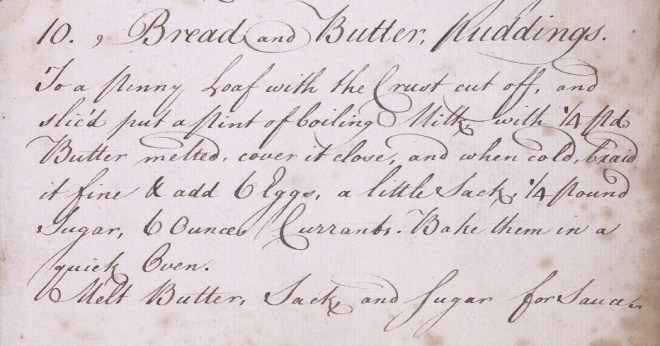 10. , Bread and Butter, Puddings.
To a Penny Loaf with the Crust cut off, and
slic'd put a Pint of boiling Milk, with 1/4 Pd.
Butter melted, cover it close, and when cold, braid
it fine & add 6 Eggs, a little Sack, 1/4 Pound
Sugar, 6 Ounces Currants. Bake them in a
quick Oven.
Melt Butter, Sack, and Sugar for Sauce.